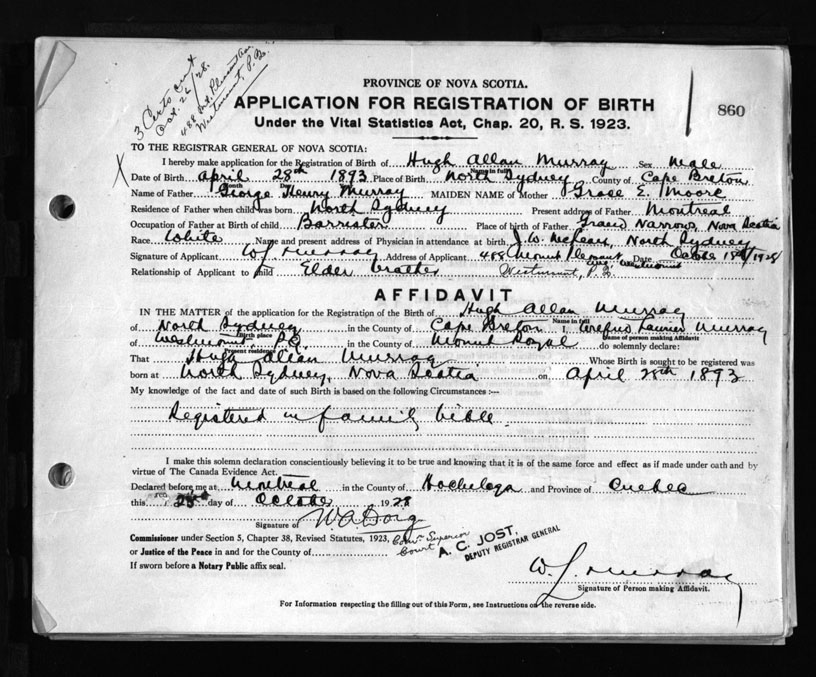 3 Certs sent
Oct. 26/28.
488 Mt. Pleasant Ave
Westmount, P.Q.
PROVINCE OF NOVA SCOTIA.
APPLICATION FOR REGISTRATION OF BIRTH
860
Under the Vital Statistics Act, Chap. 20, R. S. 1923.
TO THE REGISTRAR GENERAL OF NOVA SCOTIA:
I hereby make application for the Registration of Birth of Hugh Allan Murray Sex Male
Name in full
Date of Birth April 28th 1893 Place of Birth North Sydney County of Cape Breton
Month Day
Name of Father George Henry Murray MAIDEN NAME of Mother Grace E. Moore
Residence of Father when child was born North Sydney Present address of Father Montreal
Occupation of Father at Birth of child Barrister Place of birth of Father Grand Narrows, Nova Scotia
Race White Name and present address of Physician in attendance at birth J. W. McLean, North Sydney
Signature of Applicant W L Murray Address of Applicant 488 Mount Pleasant Ave Westmount Date October 18th/1928
Relationship of Applicant to child Elder brother Westmount, P.Q.
AFFIDAVIT
IN THE MATTER of the application for the Registration of the Birth of Hugh Allan Murray
Name in full
of North Sydney in the County of Cape Breton I, Wilfrid Laurier Murray
Birth place Name of person making Affidavit
of Westmount P.Q. in the County of Mount Royal do solemnly declare:
Present residence
That Hugh Allan Murray Whose Birth is sought to be registered was
born at North Sydney, Nova Scotia on April 28th 1893
My knowledge of the fact and date of such Birth is based on the following Circumstances :—
Registered in family bible
I make this solemn declaration conscientiously believing it to be true and knowing that it is of the same force and effect as if made under oath and by
virtue of The Canada Evidence Act.
Declared before me at Montreal in the County of Hochelaga and Province of Quebec
this 23rd day of October 1928
Signature of W. A. Doig
Commissioner under Section 5, Chapter 38, Revised Statutes, 1923, Comr Superior
Court
or Justice of the Peace in and for the County of
A. C. JOST,
DEPUTY REGISTRAR GENERAL
If sworn before a Notary Public affix seal.
W. L. Murray
Signature of Person making Affidavit.
For Information respecting the filling out of this Form, see Instructions on the reverse side.